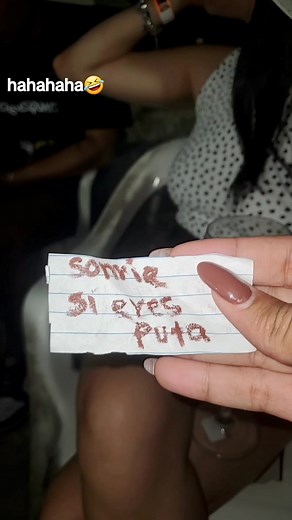 hahahaha🤣
sonrie
si eres
puta